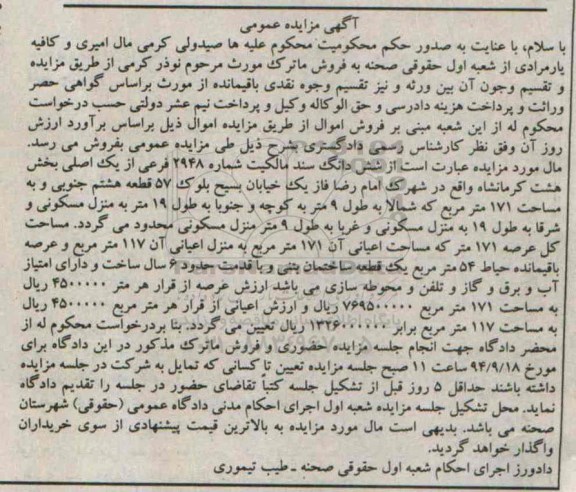 آگهی مزایده عمومی
با سلام، با عنایت به صدور حکم محکومیت محکوم علیه ها صیدولی کرمی مال امیری و کافیه
یارمرادی از شعبه اول حقوقی صحنه به فروش ماترک مورث مرحوم نوذر کرمی از طریق مزایده
و تقسیم وجون آن بین ورثه و نیز تقسیم وجوه نقدی باقیمانده از مورث براساس گواهی حصر
وراثت و پرداخت هزینه دادرسی و حق الوکاله وکیل و پرداخت نیم عشر دولتی حسب درخواست
محکوم له از این شعبه مبنی بر فروش اموال از طریق مزایده اموال ذیل براساس برآورد ارزش
روز آن وفق نظر کارشناس رسمی دادگستری بشرح ذیل طی مزایده عمومی بفروش می رسد.
مال مورد مزایده عبارت است از شش دانگ سند مالکیت شماره ۲۹۴۸ فرعی از یک اصلی بخش
هشت کرمانشاه واقع در شهرک امام رضا فاز یک خیابان بسیج بلوک ۵۷ قطعه هشتم جنوبی و به
مساحت ۱۷۱ متر مربع که شمالا به طول ۹ متر به کوچه و جنوبا به طول ۱۹ متر به منزل مسکونی و
شرقا به طول ۱۹ به منزل مسکونی و غربا به طول ۹ متر منزل مسکونی محدود می گردد. مساحت
کل عرصه ۱۷۱ متر که مساحت اعیانی آن ۱۷۱ متر مربع به منزل اعیانی آن ۱۱۷ متر مربع و عرصه
باقیمانده حیاط ۵۴ متر مربع یک قطعه ساختمان بتنی و با قدمت حدود ۶ سال ساخت و دارای امتیاز
آب و برق و گاز و تلفن و محوطه سازی می باشد ارزش عرصه از قرار هر متر ۴۵۰۰۰۰۰ ریال
به مساحت ۱۷۱ متر مربع ۷۶۹۵۰۰۰۰۰ ریال و ارزش اعیانی از قرار هر متر مربع ۴۵۰۰۰۰۰ ریال
به مساحت ۱۱۷ متر مربع برابر ۱۳۲۶۰۰۰۰۰۰ ریال تعیین می گردد. بنا بردرخواست محکوم له از
محضر دادگاه جهت انجام جلسه مزایده حضوری و فروش ماترک مذکور در این دادگاه برای
مورخ ۹۴/۹/۱۸ ساعت ۱۱ صبح جلسه مزایده تعیین تا کسانی که تمایل به شرکت در جلسه مزایده
داشته باشند حداقل ۵ روز قبل از تشکیل جلسه کتباً تقاضای حضور در جلسه را تقدیم دادگاه
نماید. محل تشکیل جلسه مزایده شعبه اول اجرای احکام مدنی دادگاه عمومی (حقوقی) شهرستان
صحنه می باشد. بدیهی است مال مورد مزایده به بالاترین قیمت پیشنهادی از سوی خریداران
واگذار خواهد گردید.
دادورز اجرای احکام شعبه اول حقوقی صحنه ـ طیب تیموری